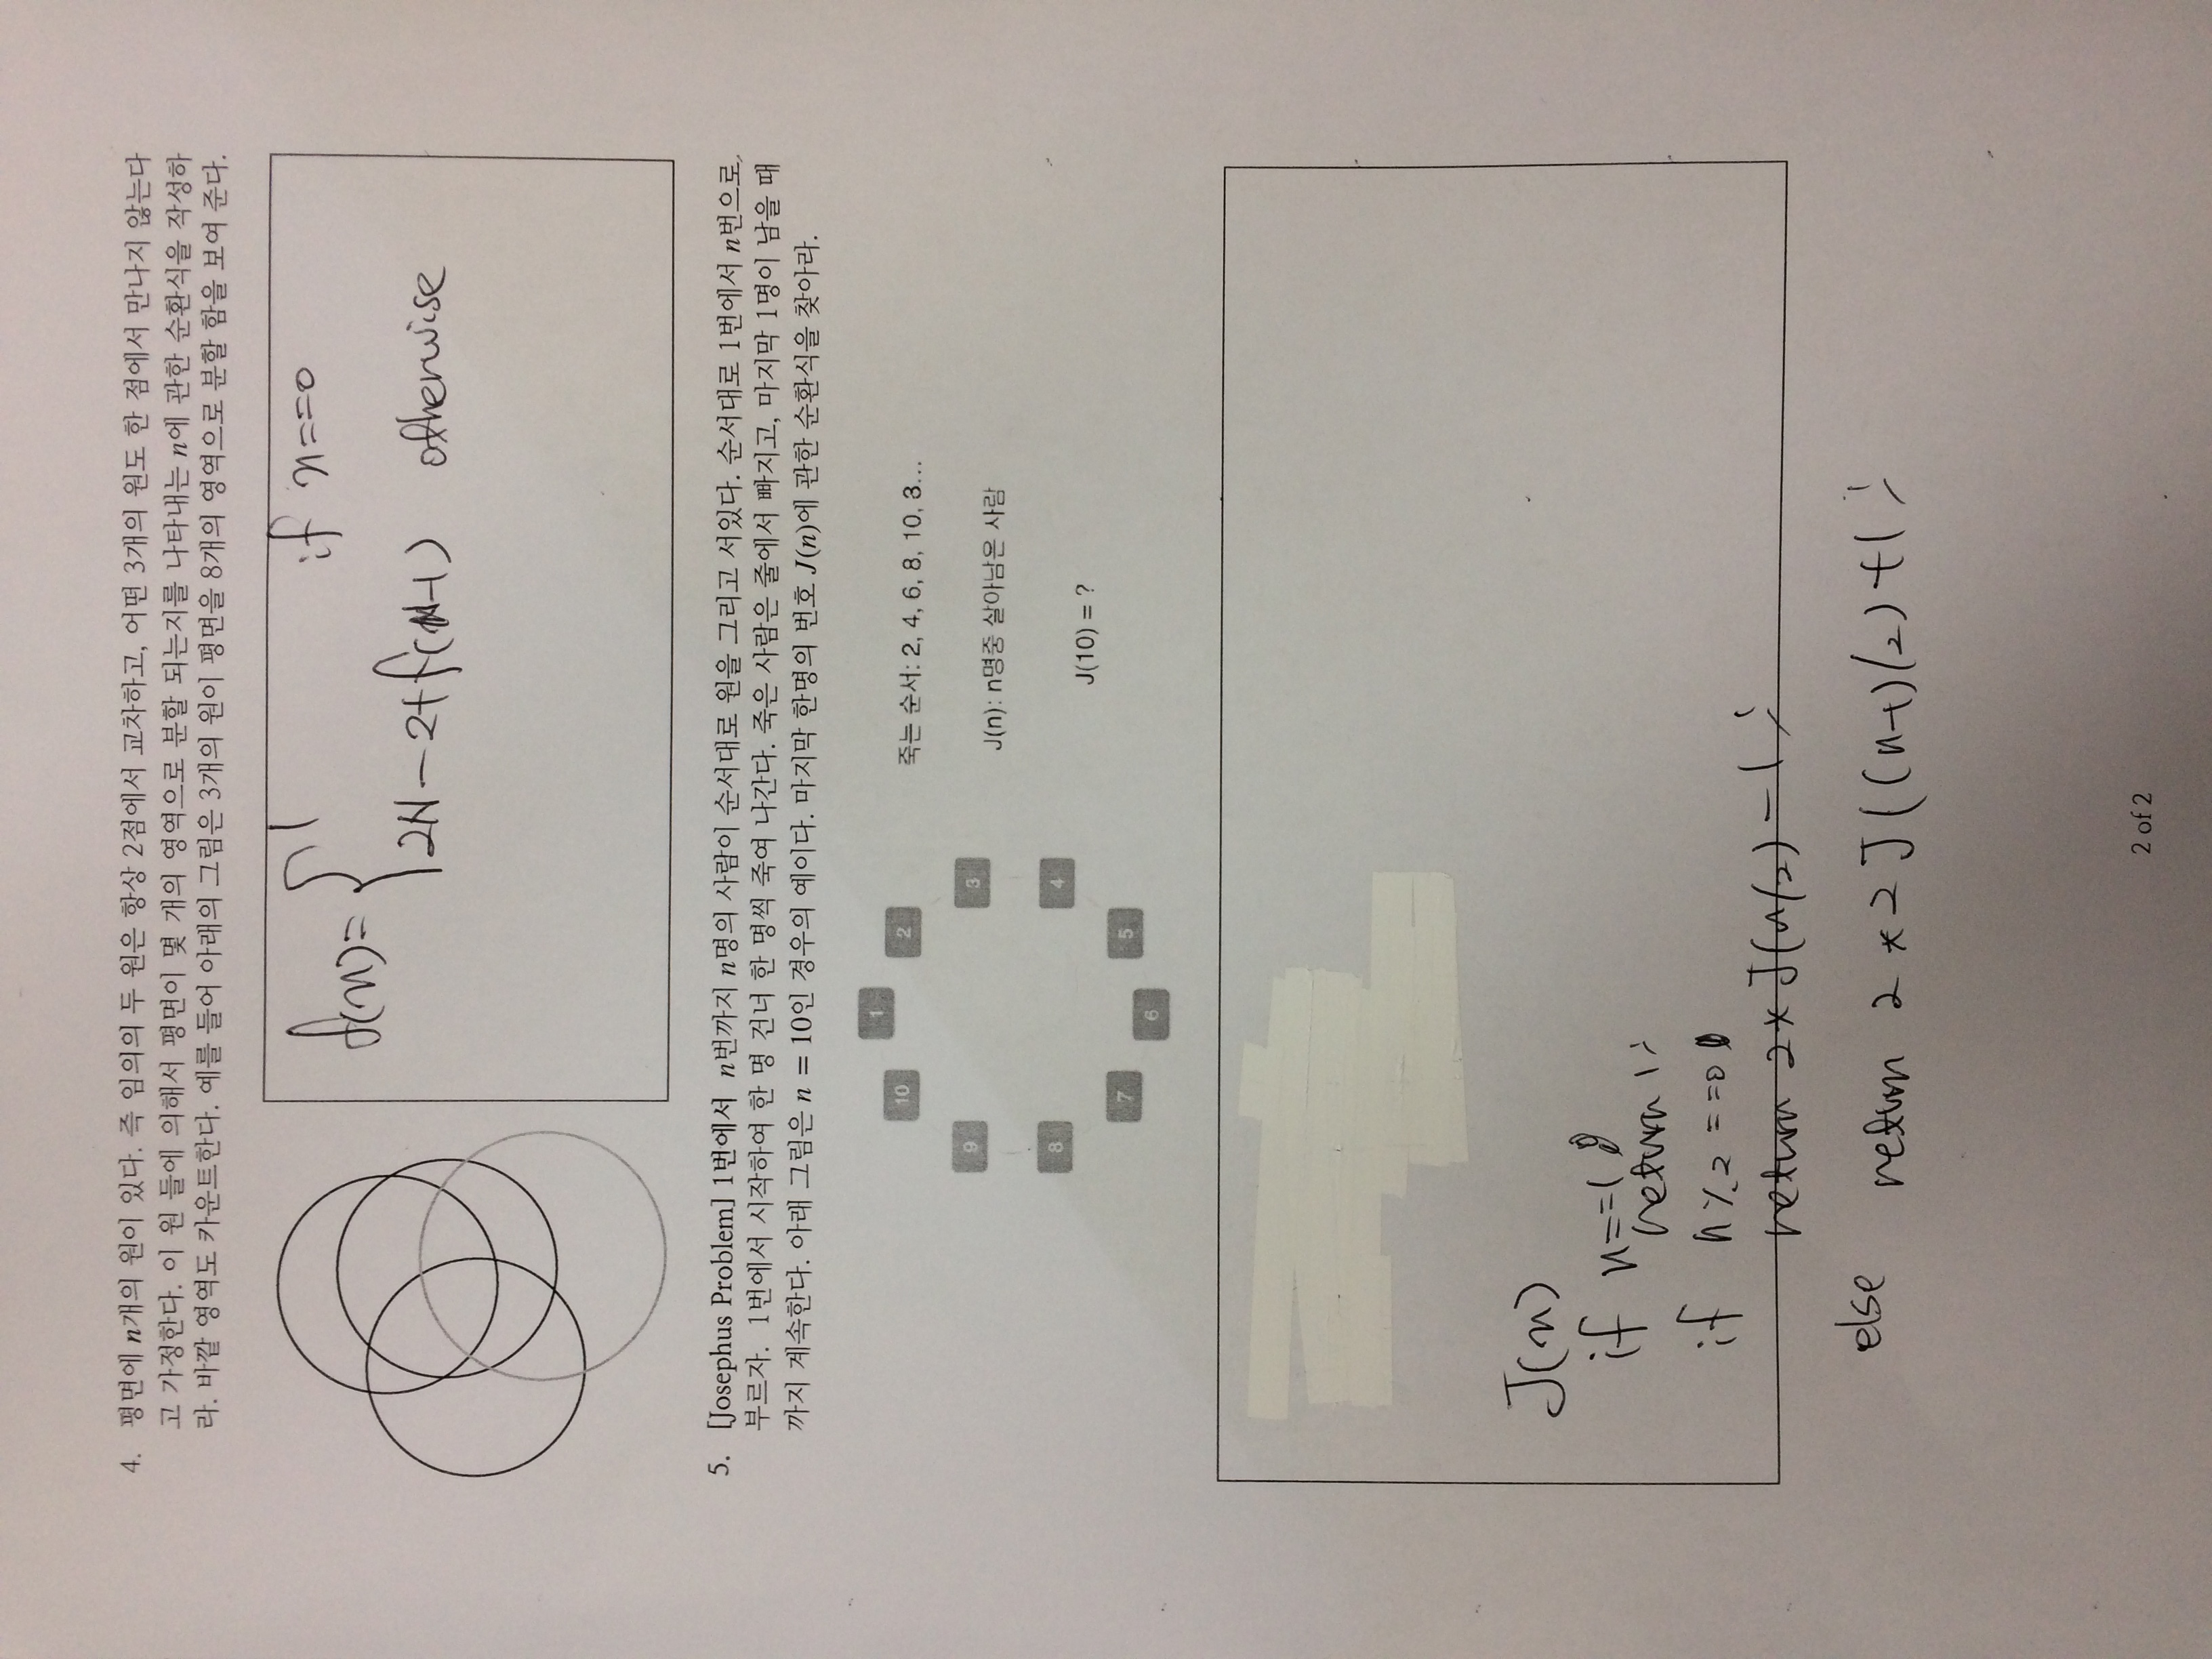 4. 평면에 n개의 원이 있다. 즉 임의의 두 원은 항상 2점에서 교차하고, 어떤 3개의 원도 한 점에서 만나지 않는다
고 가정한다. 이 원 들에 의해서 평면이 몇 개의 영역으로 분할 되는지를 나타내는 n에 관한 순환식을 작성하
라. 바깥 영역도 카운트한다. 예를 들어 아래의 그림은 3개의 원이 평면을 8개의 영역으로 분할 함을 보여 준다.
f(n)= { 1 if n==0
2N-2+f(N-1) otherwise
5. [Josephus Problem] 1번에서 n번까지 n명의 사람이 순서대로 원을 그리고 서있다. 순서대로 1번에서 n번으로
부르자. 1번에서 시작하여 한 명 건너 한 명씩 죽여 나간다. 죽은 사람은 줄에서 빠지고, 마지막 1명이 남을 때
까지 계속한다. 아래 그림은 n = 10인 경우의 예이다. 마지막 한명의 번호 J(n)에 관한 순환식을 찾아라.
1
10 2
9 3
8 4
7 5
6
죽는 순서: 2, 4, 6, 8, 10, 3...
J(n): n명중 살아남은 사람
J(10) = ?
J(n)
if n==1
return 1;
if n%2==0
return 2*J(n/2)-1;
else return 2*2J((n-1)/2)+1;
2 of 2